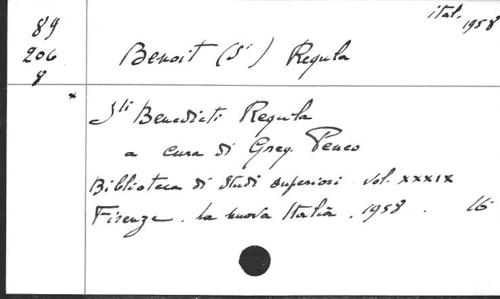 ital.
1958
89
206
8
Benoit (St) Regula
* Sti Benedicti Regula
a cura di Greg. Penco
Biblioteca di Studi superiori. vol. XXXIX
Firenze. la nuova Italia. 1958. 16-